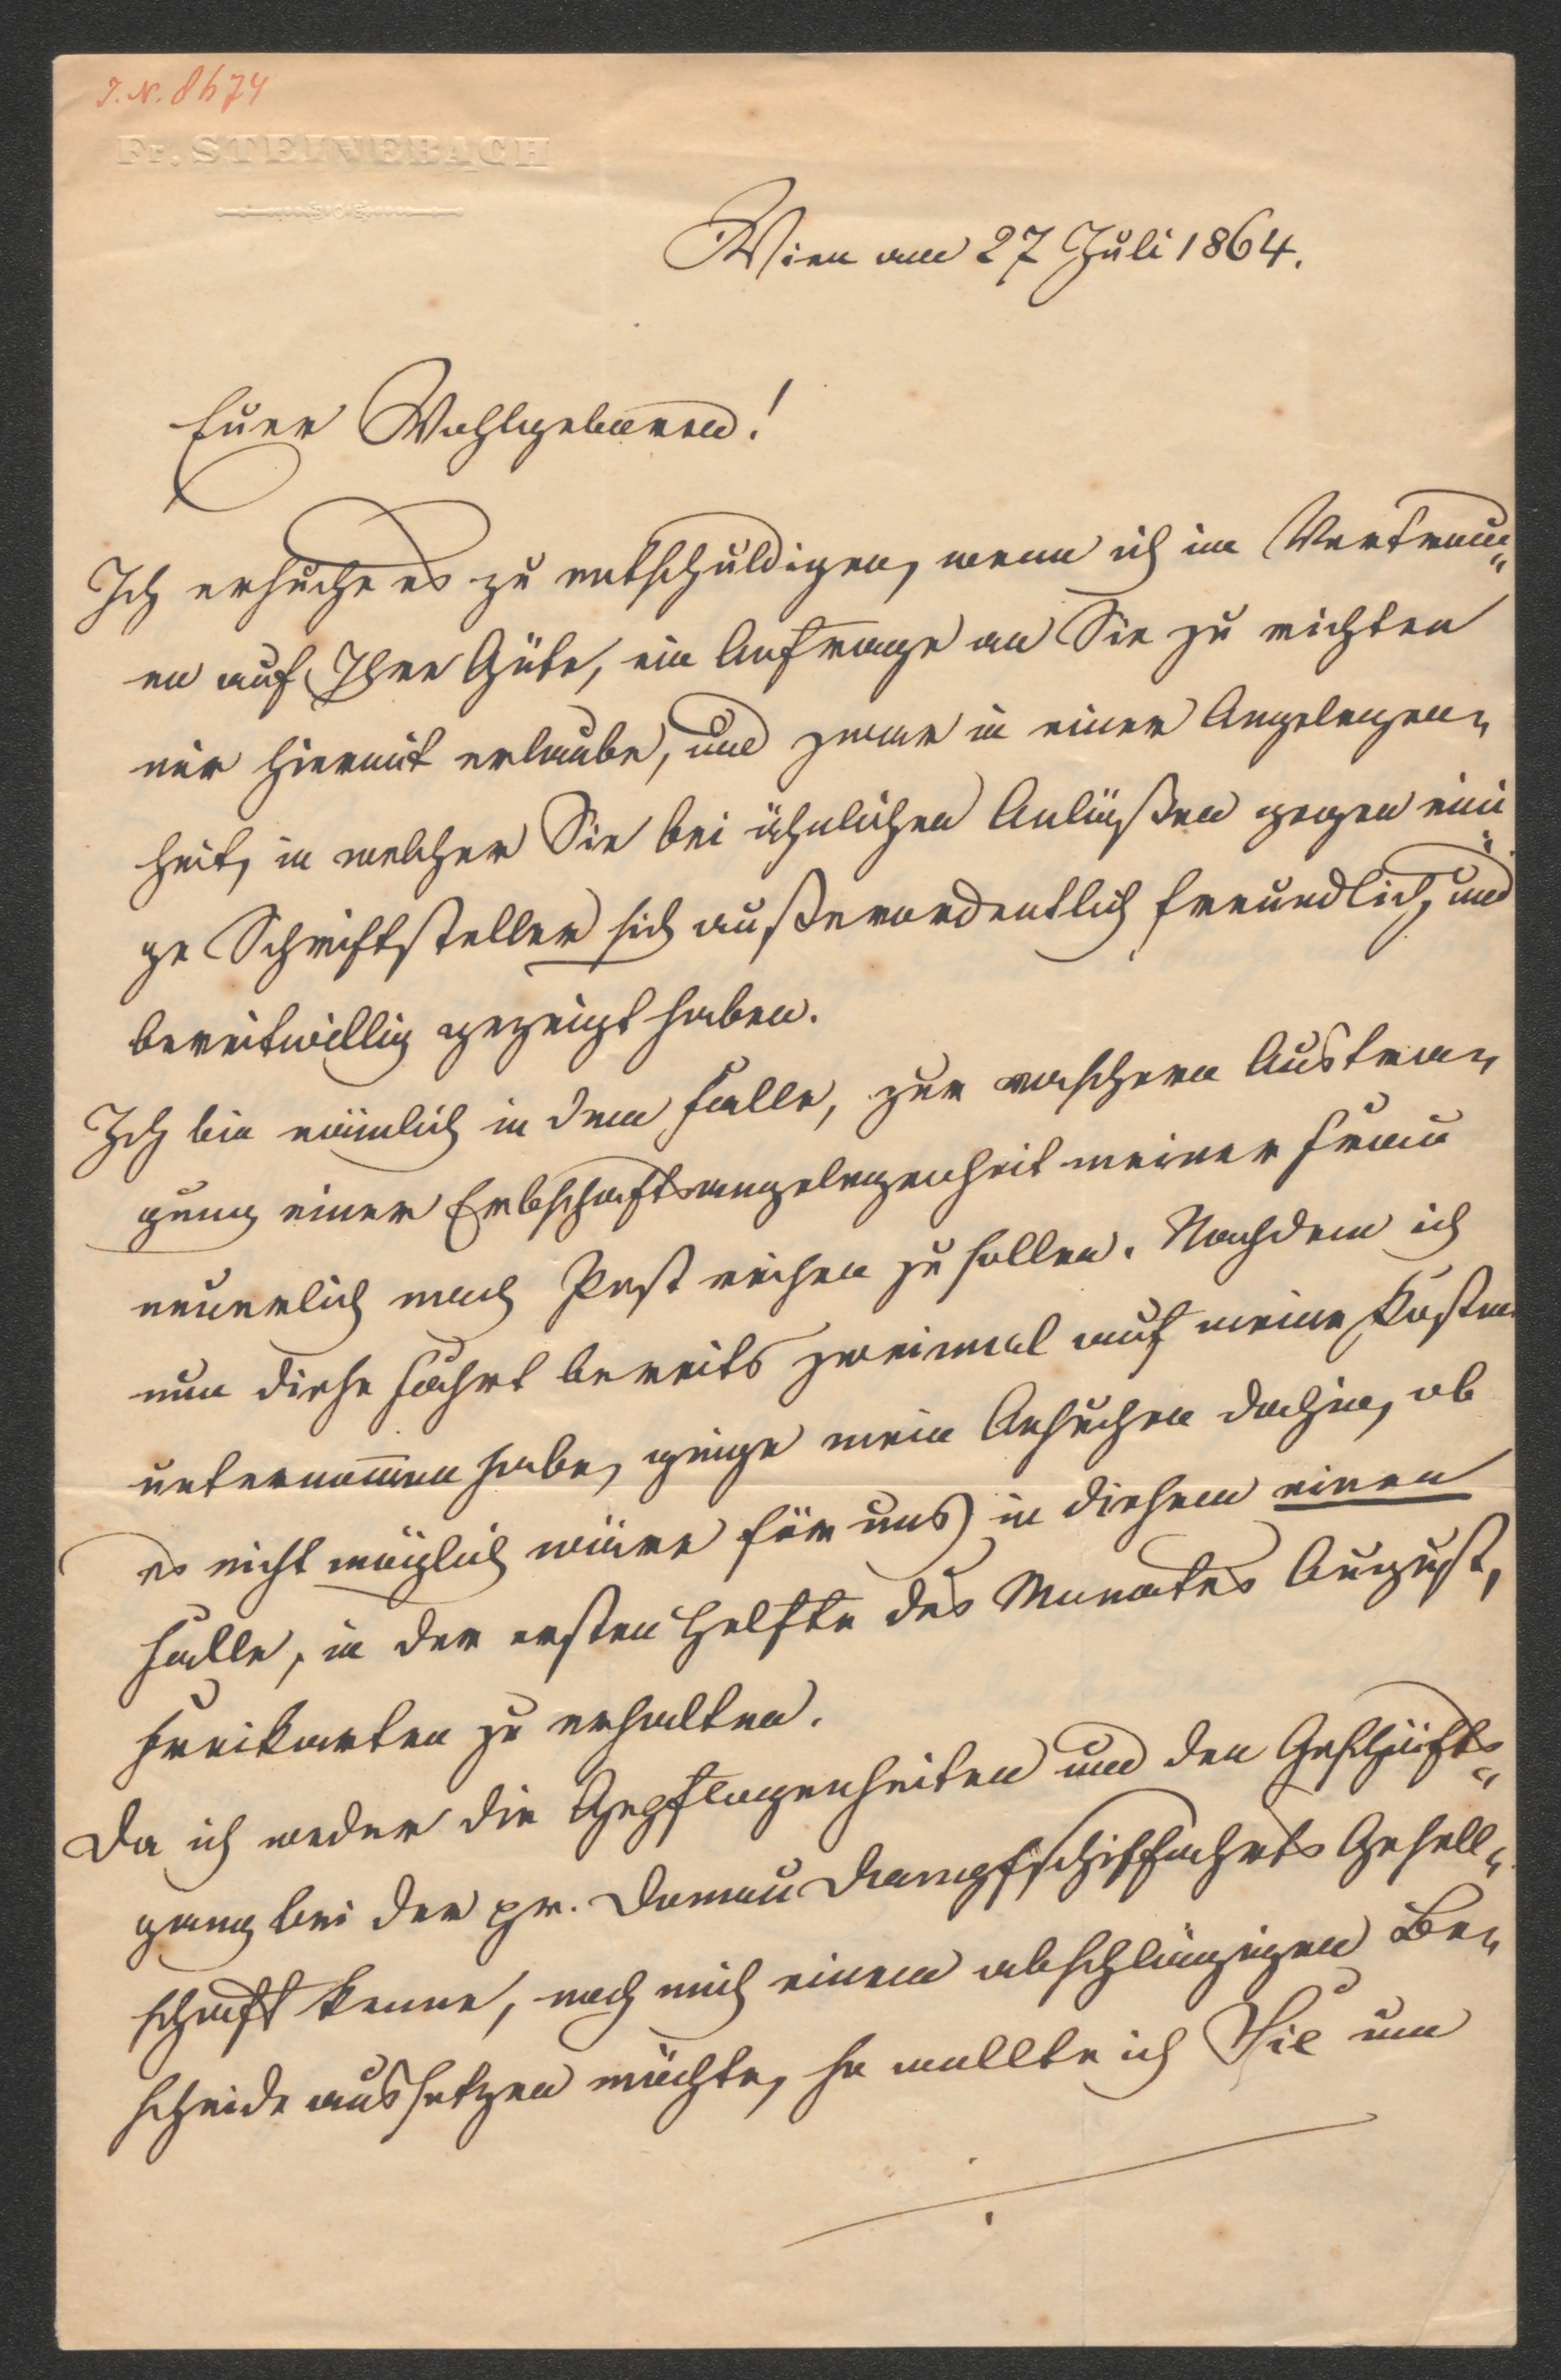 J. N. 8674
Fr. STEINEBACH
Wien am 27 Juli 1864.
Euer Wohlgeboren!
Ich ersuche es zu entschuldigen, wenn ich im Vertrau„
en auf Ihre Güte, ein Anfrage an Sie zu richten
mir hiermit erlaube, und zwar in einer Angelegen„
heit, in welcher Sie bei ähnlichen Anläßen gegen eini„
ge Schriftsteller sich außerordentlich freundlich, und
bereitwillig gezeigt haben.
Ich bin nämlich in dem Falle, zur raschern Austra„
gung einer Erbschaftsangelegenheit meiner Frau
neuerlich nach Pest reisen zu sollen. Nachdem ich
nun diese Fahrt bereits zweimal auf meine Kosten
unternom̄en habe, ginge mein Ansuchen dahin, ob
es nicht möglich wäre für uns in diesem einen
Falle, in der ersten Helfte des Monates August,
Freikarten zu erhalten.
Da ich weder die Gepflogenheiten und den Geschäfts„
gang bei der pr. Donau Dampfschiffahrts Gesell„
schaft kenne, noch mich einem abschlägigen Be„
scheide aussetzen möchte, so wollte ich Sie um